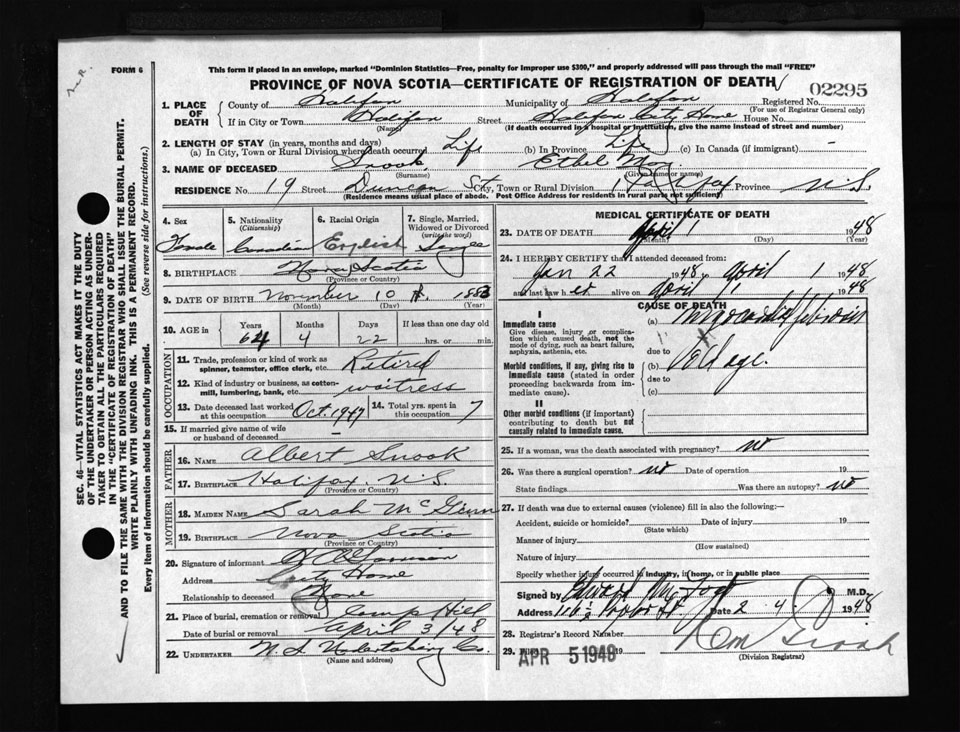 FORM 6
This form if placed in an envelope, marked "Dominion Statistics—Free, penalty for improper use $300," and properly addressed will pass through the mail "FREE"
PROVINCE OF NOVA SCOTIA—CERTIFICATE OF REGISTRATION OF DEATH
02295
1. PLACE OF DEATH
County of Halifax Municipality of Halifax Registered No.
(For use of Registrar General only)
If in City or Town Halifax Street Halifax City Home House No.
(Name) (If death occurred in a hospital or institution, give the name instead of street and number)
2. LENGTH OF STAY (in years, months and days)
(a) In City, Town or Rural Division where death occurred Life (b) In Province Life (c) In Canada (if immigrant) -
3. NAME OF DECEASED Snook Ethel May
(Surname) (Given name or names)
RESIDENCE No. 19 Street Duncan St City, Town or Rural Division Halifax Province N.S.
(Residence means usual place of abode. Post Office Address for residents in rural parts not sufficient)
4. Sex Female
5. Nationality (Citizenship) Canadian
6. Racial Origin English
7. Single, Married, Widowed or Divorced (write the word) Single
8. BIRTHPLACE Nova Scotia
(Province or Country)
9. DATE OF BIRTH November 10 1883
(Month) (Day) (Year)
10. AGE in Years Months Days If less than one day
64 4 22 hrs. or min.
OCCUPATION
11. Trade, profession or kind of work as spinner, teamster, office clerk, etc. Retired
12. Kind of industry or business, as cotton-mill, lumbering, bank, etc. waitress
13. Date deceased last worked at this occupation Oct. 1947
14. Total yrs. spent in this occupation 7
15. If married give name of wife or husband of deceased -
FATHER
16. NAME Albert Snook
17. BIRTHPLACE Halifax, N.S.
(Province or Country)
MOTHER
18. MAIDEN NAME Sarah
19. BIRTHPLACE Nova Scotia
(Province or Country)
20. Signature of informant
Address City Home
Relationship to deceased None
21. Place of burial, cremation or removal Camp Hill
Date of burial or removal April 3/48
22. UNDERTAKER N.S. Undertaking Co.
(Name and address)
MEDICAL CERTIFICATE OF DEATH
23. DATE OF DEATH April 1 1948
(Month) (Day) (Year)
24. I HEREBY CERTIFY that I attended deceased from:
Jan 22 1948 to April 1 1948
and last saw her alive on April 1 1948
CAUSE OF DEATH
I
Immediate cause
Give disease, injury or complication which caused death, not the mode of dying, such as heart failure, asphyxia, asthenia, etc.
(a) Myocardial
due to
Morbid conditions, if any, giving rise to immediate cause (stated in order proceeding backwards from immediate cause).
(b) Old age.
due to
(c)
II
Other morbid conditions (if important) contributing to death but not causally related to immediate cause.
25. If a woman, was the death associated with pregnancy? No
26. Was there a surgical operation? No Date of operation 19
State findings Was there an autopsy? No
27. If death was due to external causes (violence) fill in also the following:
Accident, suicide or homicide? Date of injury 19
(State which)
Manner of injury
(How sustained)
Nature of injury
Specify whether injury occurred in industry, in home, or in public place
Signed by M.D.
Address Date 2.4. 1948
28. Registrar's Record Number
29. Filed APR 5 1948 19
(Division Registrar)
SEC. 46—VITAL STATISTICS ACT MAKES IT THE DUTY
OF THE UNDERTAKER OR PERSON ACTING AS UNDER-
TAKER TO OBTAIN ALL THE PARTICULARS REQUIRED
IN THE "CERTIFICATE OF REGISTRATION OF DEATH"
AND TO FILE THE SAME WITH THE DIVISION REGISTRAR WHO SHALL ISSUE THE BURIAL PERMIT.
WRITE PLAINLY WITH UNFADING INK. THIS IS A PERMANENT RECORD.
Every item of information should be carefully supplied. (See reverse side for instructions.)